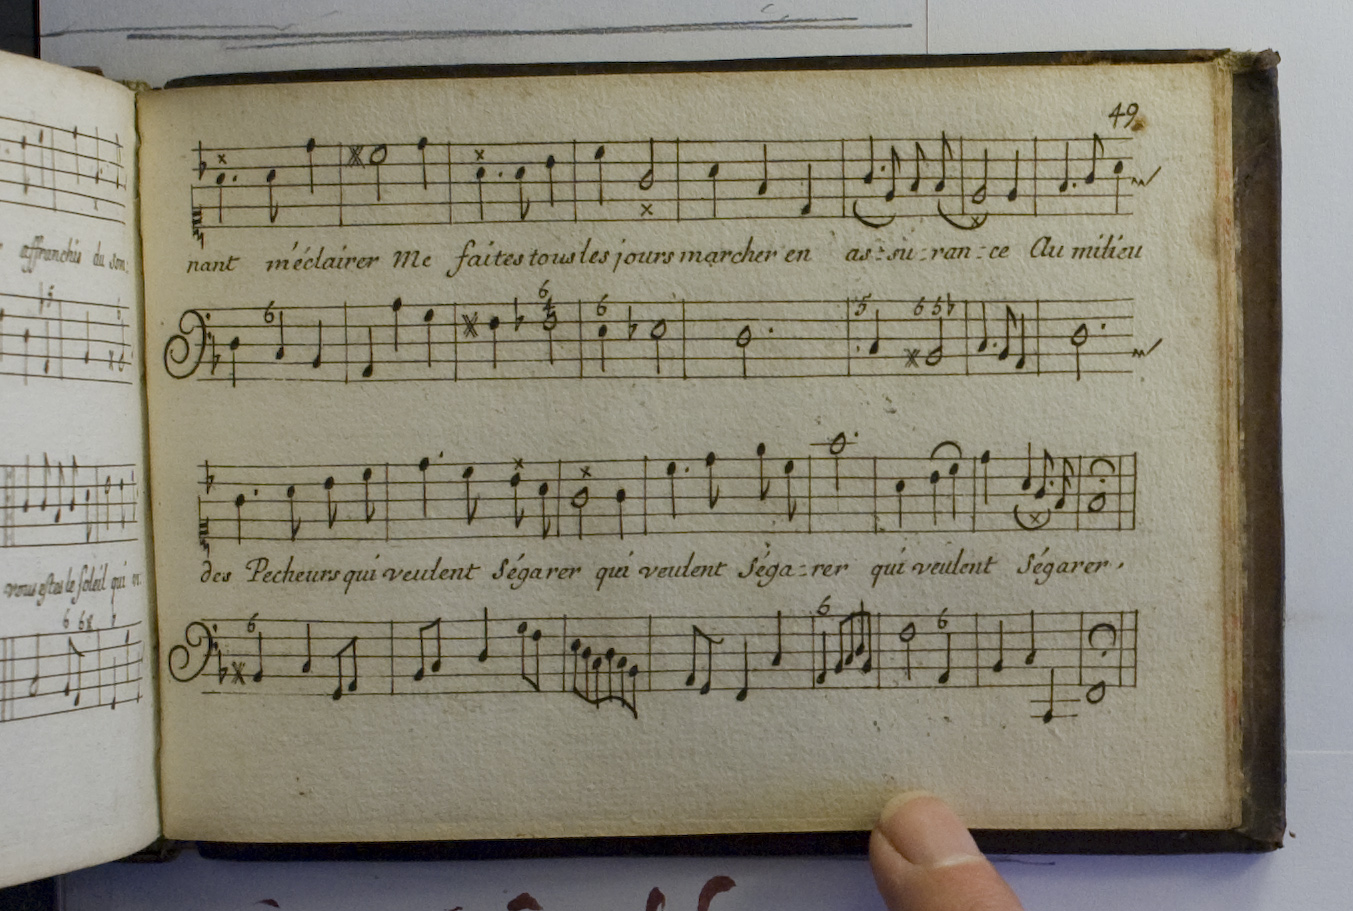 49
affranchis du son
nant m'éclairer Me faites tous les jours marcher en as-su-ran-ce Au milieu
6 6 4 6 5 6 5♭
vous estes le soleil qui
des Pecheurs qui veulent Ségarer qui veulent Séga-rer qui veulent Ségarer.
6 6 6